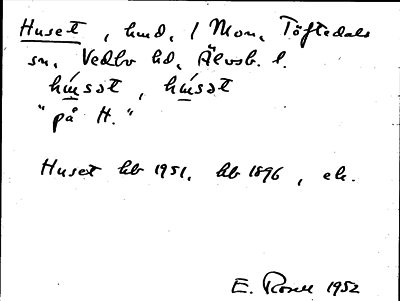 Huset, hmd, / Mon, Töftedals
sn, Vedbo hd, Älvsb. l.
hú̲sət, hú̲sət
"på H."
Huset hb 1951, hb 1896, ek.
E. Rosell 1952